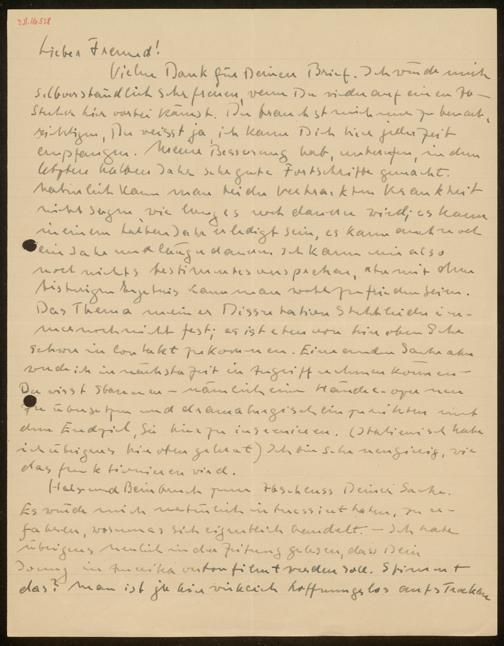 Lieber Freund!
Vielen Dank für Deinen Brief. Ich würde mich
selbverständlich sehr freuen, wenn Du wieder auf einen
hier vorbei kämst. Du brauchst mich nur zu benach-
richtigen, Du weisst ja, ich kann Dich hier jederzeit
empfangen. Meine Besserung hat, unberufen, in dem
letzten halben Jahr sehr gute Fortschritte gemacht.
Natürlich kann man bei der vertrackten Krankheit
nicht sagen, wie lang es noch dauern wird; es kann
in einem halben Jahr erledigt sein, es kann auch noch
ein Jahr und länger dauern. Ich kann mir also
noch nichts bestimmtes versprechen, aber mit dem
bisherigen Ergebnis kann man wohl zufrieden sein.
Das Thema meiner Dissertation steht leider im-
mer noch nicht fest; es ist eben von hier oben sehr
schwer in Contakt zu kommen. Eine andere Sache aber
werde ich in nächster Zeit in Angriff nehmen können –
Du wirst staunen – nämlich eine Händel-oper neu
zu übersetzen und dramaturgisch einzurichten mit
dem Endziel, sie hier zu inscenieren. (Italienisch habe
ich übrigens hier oben gelernt) Ich bin sehr neugierig, wie
das funktionieren wird.
Hals und Beinbruch zum Deiner Sache.
Es würde mich natürlich interessiert haben, zu er-
fahren, worum es sich eigentlich handelt. – Ich habe
übrigens neulich in der Zeitung gelesen, dass Dein
in Amerika vertonfilmt werden soll. Stimmt
das? Man ist ja hier wirklich hoffnungslos aufs Trockene